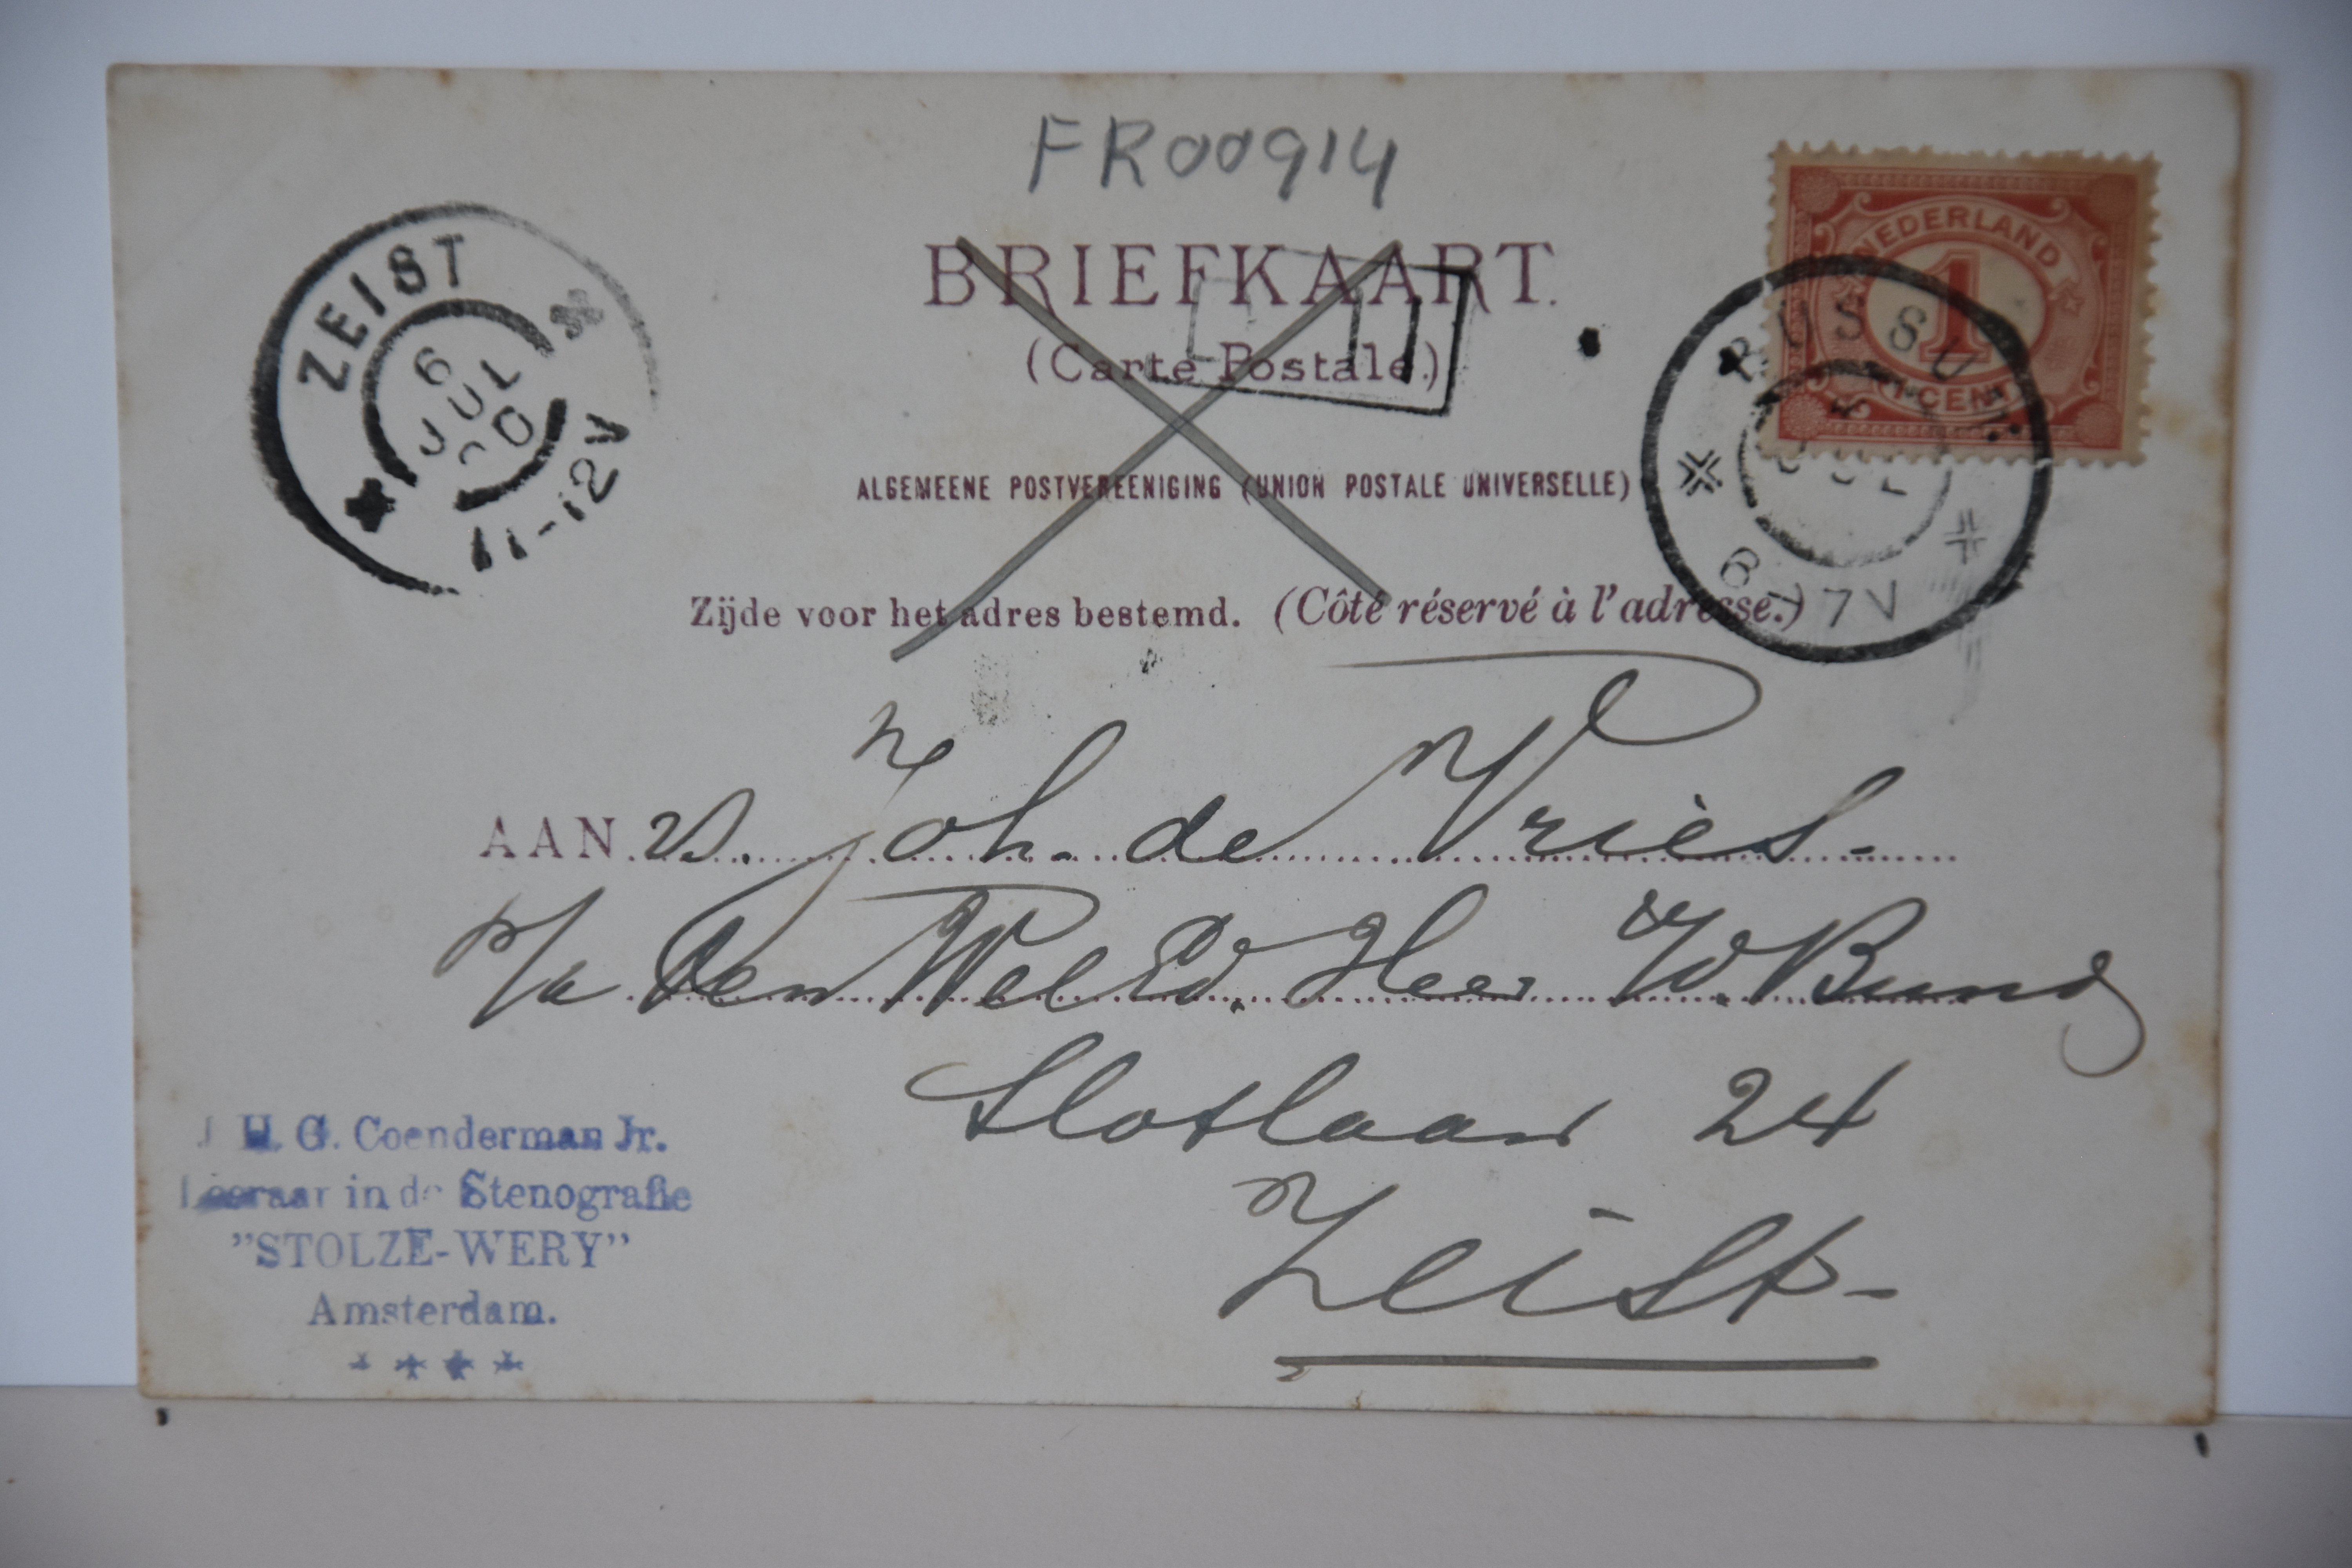 FR00914
BRIEFKAART.
(Carte Postale.)
ALGEMEENE POSTVEREENIGING (UNION POSTALE UNIVERSELLE)
Zijde voor het adres bestemd. (Côté réservé à l'adresse.)
ZEIST
6
JUL
11-12V
NEDERLAND
1
1 CENT
BUSSUM
JUL
6-7V
AAN Joh. de Vries.
p/a Den WelEd. Heer W. Bund
Slotlaan 24
Zeist-
H. G. Coenderman Jr.
Leeraar in de Stenografie
"STOLZE-WERY"
Amsterdam.